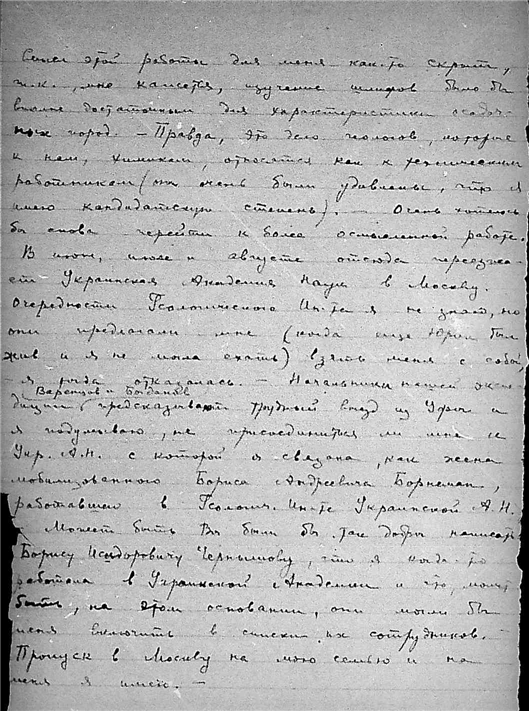 Смысл этой работы для меня как-то скрыт,
т.к., мне кажется, изучение шлифов было бы
вполне достаточным для характеристики осадоч-
ных пород. – Правда, это дело геологов, которые
к нам, химикам, относятся как к техническим
работникам (они очень были удивлены, что я
имею кандидатскую степень). – Очень хотелось
бы снова перейти к более осмысленной работе.
В июне, июле и августе отсюда переезжа-
ет Украинская Академия Наук в Москву.
Очередности Геологического Ин-та я не знаю, но
они предлагали мне (когда еще Юрий был
жив и я не могла ехать) взять меня с собой,
– я тогда отказалась. – Начальники нашей экспе-
Варенцов и Богданов
диции предсказывают трудный выезд из Уфы и
я подумываю, не присоединиться ли мне к
Укр. А.Н. с которой я связана, как жена
мобилизованного Бориса Андреевича Борнеман,
работавшего в Геолог. Ин-те Украинской А.Н.
– Может быть Вы были бы так добры написать
Борису Исидоровичу Чернышову, что я когда-то
работала в Украинской Академии и что, может
быть, на этом основании, они могли бы
меня включить в списки их сотрудников. –
Пропуск в Москву на мою семью и на
меня я имею. –